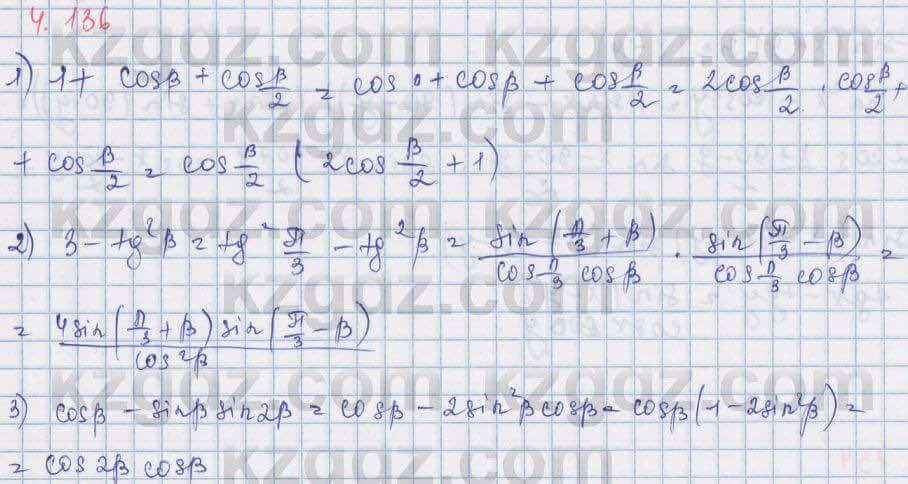 4.136
1) 1 + cosβ + cos β/2 = cos 0 + cosβ + cos β/2 = 2cos β/2 · cos β/2 +
+ cos β/2 = cos β/2 (2cos β/2 + 1)
2) 3 - tg²β = tg² π/3 - tg²β = sin(π/3 + β)/(cos π/3 cosβ) · sin(π/3 - β)/(cos π/3 cosβ) =
= 4sin(π/3 + β) sin(π/3 - β)/cos²β
3) cosβ - sinβ sin2β = cosβ - 2sin²β cosβ = cosβ(1 - 2sin²β) =
= cos2β cosβ
kzgdz.com kzgdz.com
kzgdz.com
kzgdz.com kzgdz.com
kzgdz.com
kzgdz.com kzgdz.com
kzgdz.com